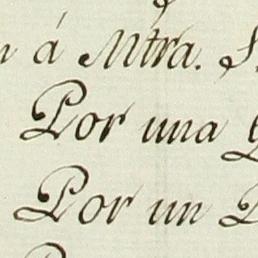 á Ntra.
Por una
Por un